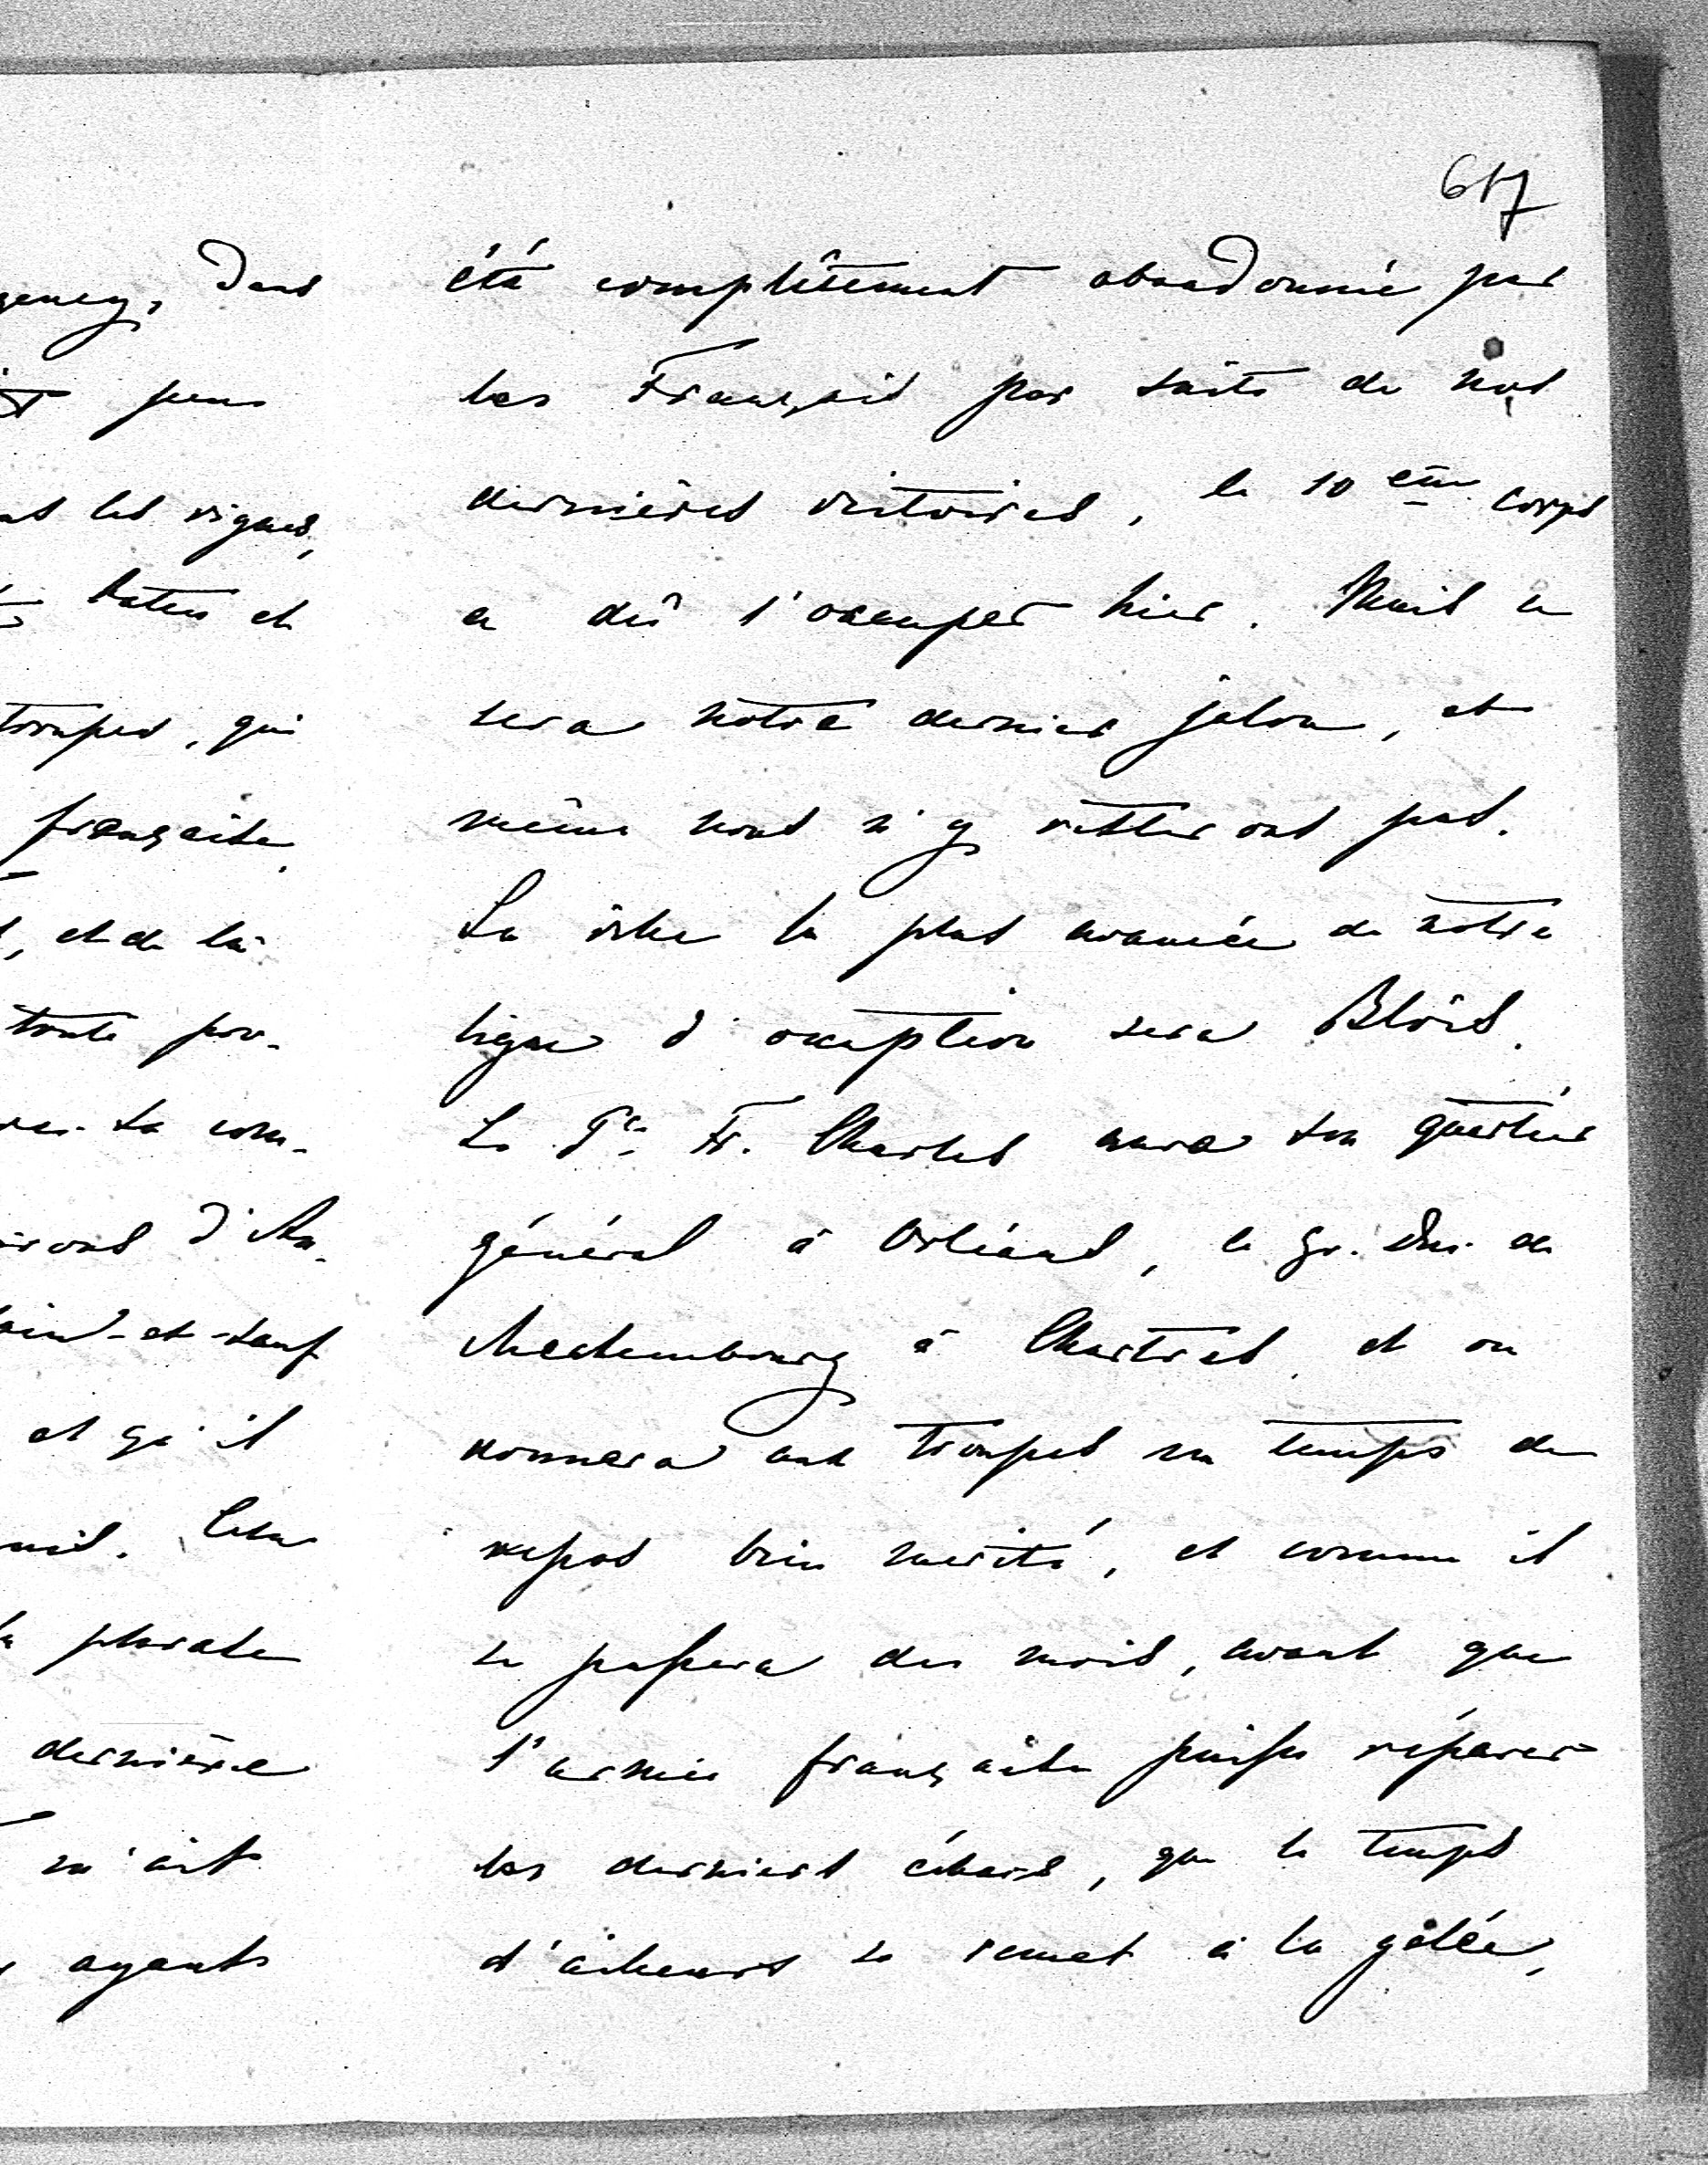 617
gency, dans
peu
les vignes,
batus et
troupes, qui
française
, et de là
toute pou-
la com-
d'Am-
sain-et-sauf
et qu'il
Cela
phrase
dernière
m'ait
ayants
été complêtement abandonnée par
les Français par suite de nos
dernières victoires, le 10 ème corps
a dû l'occuper hier. Mais ce
sera notre dernier jalon, et
même nous n'y resterons pas.
La ville la plus avancée de notre
ligne d'occuption sera Blois.
Le Pce Fr. Charles aura son quartier
général à Orléans, le Gr. Duc de
Mecklembourg à Chartres, et on
donnera aux troupes un temps de
repos bien merité, et comme il
se passera des mois, avant que
l'armée française puisse réparer
les derniers échecs, que le temps
d'ailleurs se remet à la gélée,